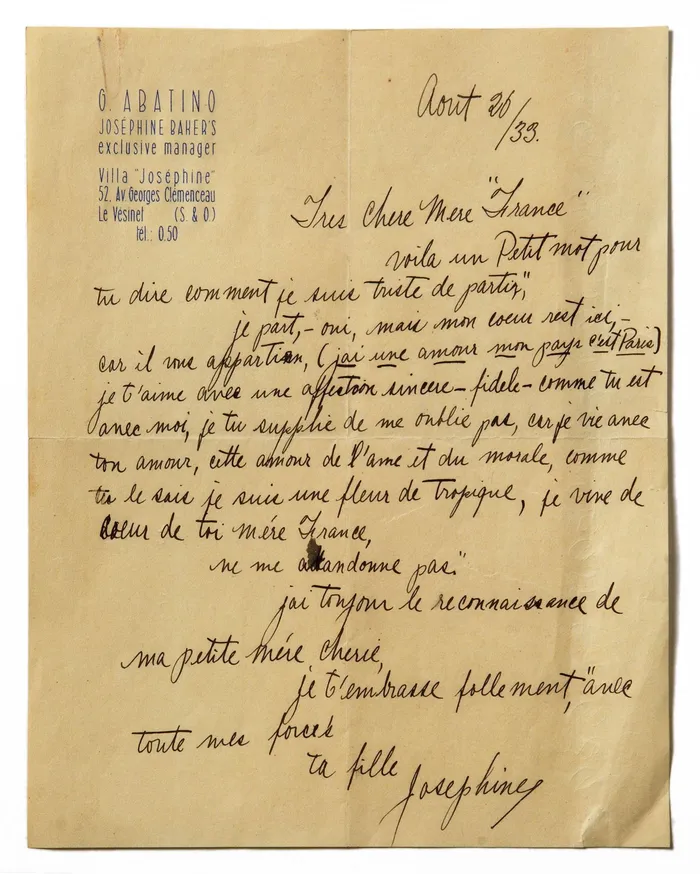 G. ABATINO
JOSÉPHINE BAKER'S
exclusive manager
Villa "Joséphine"
52, Av Georges Clémenceau
Le Vésinet (S. & O)
tél.: 0.50
Aout 26/33.
Tres chere Mere "France"
voila un Petit mot pour
tu dire comment je suis triste de partir,"
je part,- oui, mais mon coeur rest ici,-
car il vous appartien, (jai une amour mon pays c'est Paris)
je t'aime avec une affection sincere - fidele - comme tu est
avec moi, je tu supplie de me oublie pas, car je vie avec
ton amour, cette amour de l'ame et du morale, comme
tu le sais je suis une fleur de tropique, je vive de
coeur de toi Mére France,
ne me abandonne pas."
jai toujour le reconnaissance de
ma petite mére cherie,
je t'embrasse follement," avec
toute mes forces
ta fille
Josephine